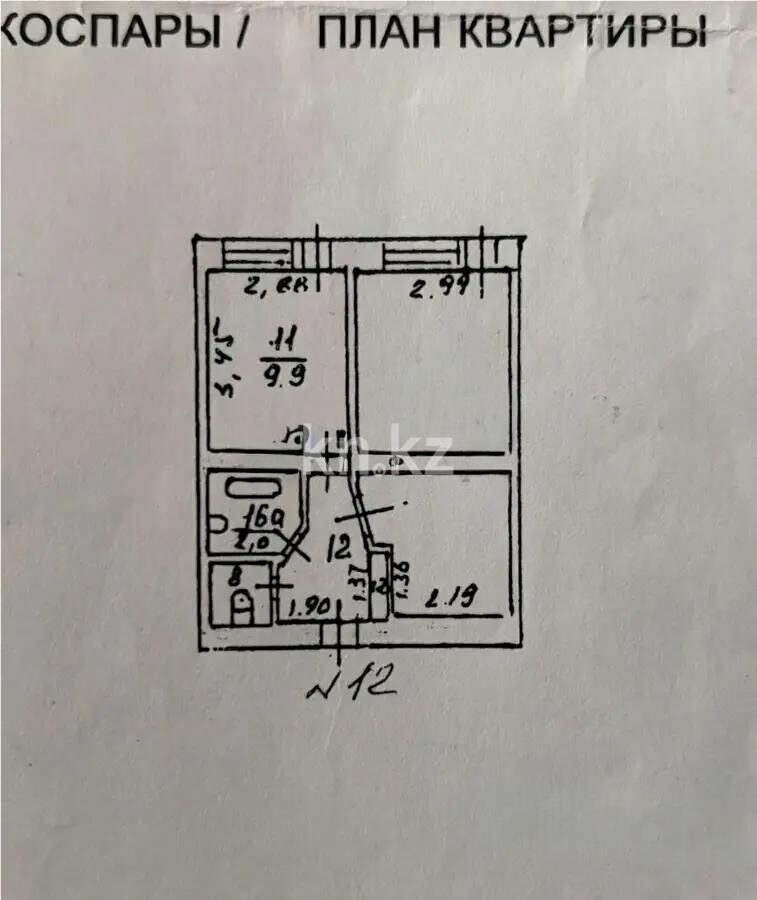 ЖОСПАРЫ / ПЛАН КВАРТИРЫ
2,88
2.99
3,45
11
9.9
kn.kz
16а
2,0
12
8
1.37
2
1.36
1.90
2.19
№12